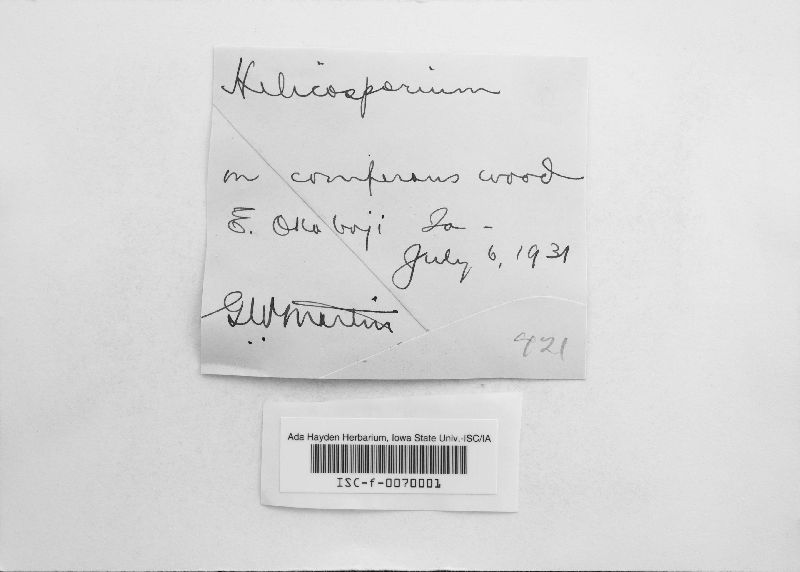 Helicosporium
on coniferous wood
E. Okoboji Ia -
July 6, 1931
G.W. Martin
421
Ada Hayden Herbarium, Iowa State Univ.-ISC/IA
ISC-f-0070001